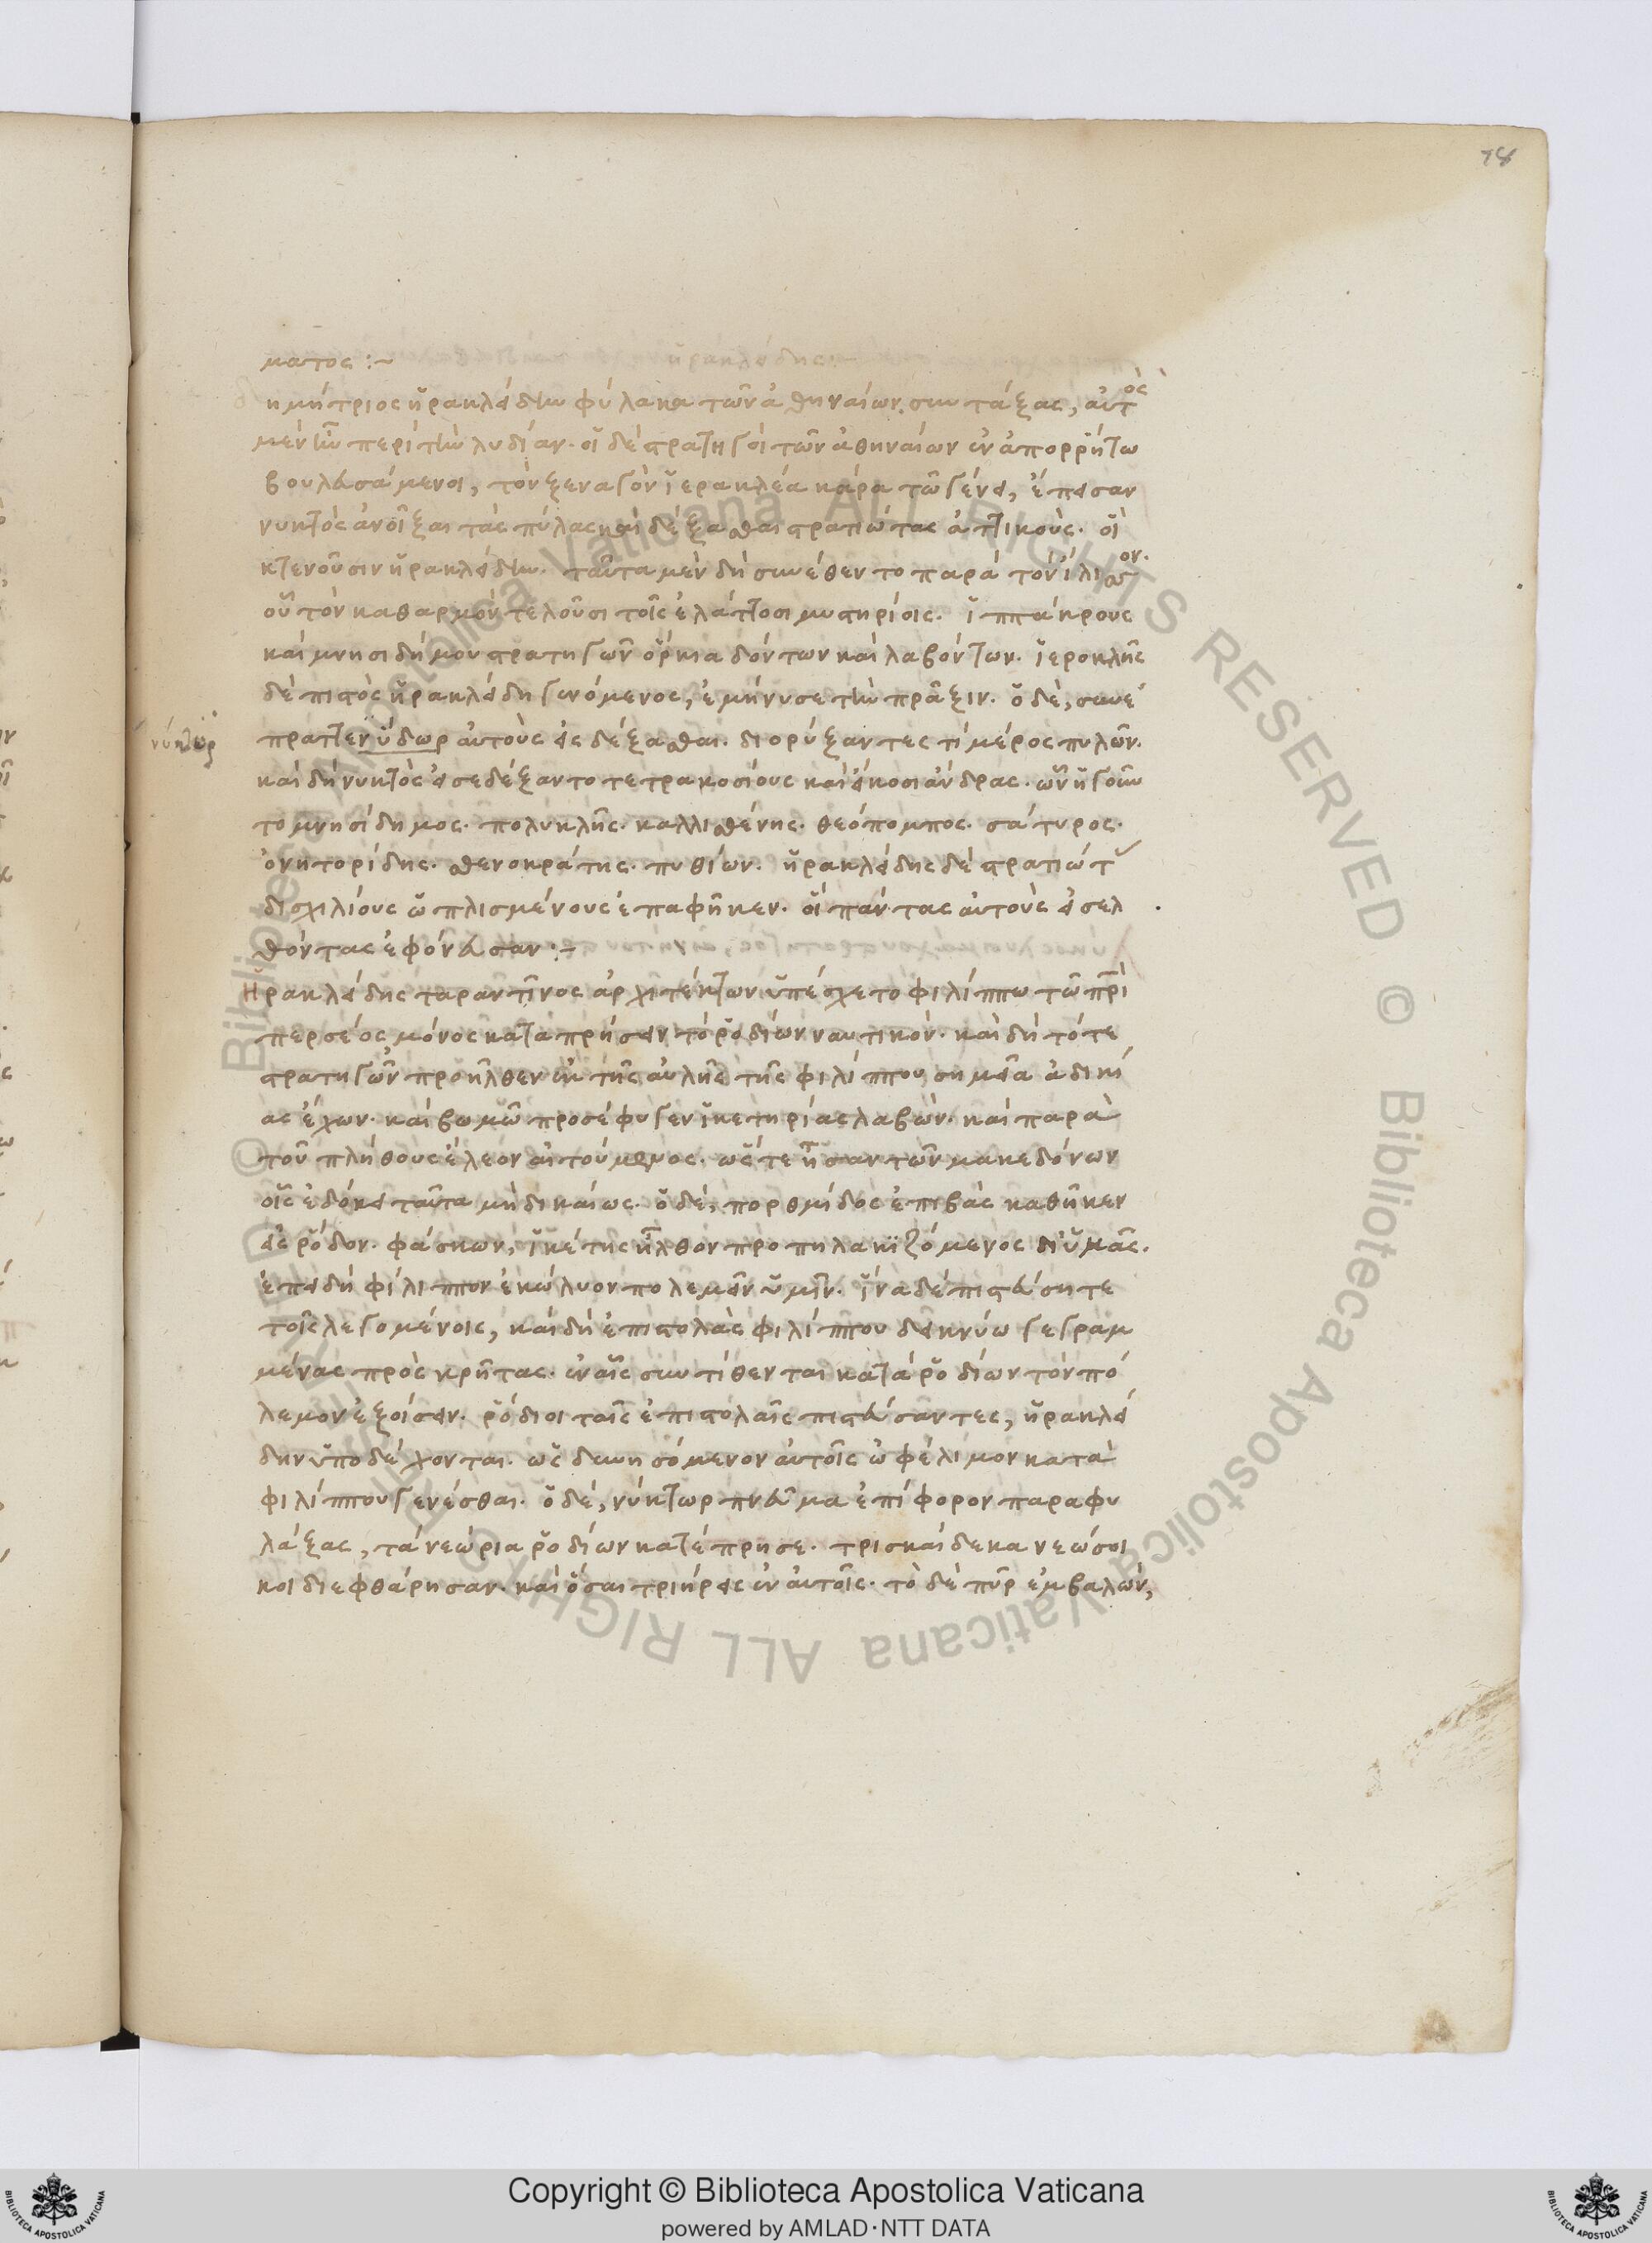 78
ματος :~
ημήτριος ἡρακλείδην φύλακα τῶν ἀθηναίων συντάξας, αὐτὸς
μὲν ἦν περὶ τὴν λυδίαν. οἱ δὲ στρατηγοὶ τῶν ἀθηναίων ἐν ἀπορρήτω
βουλευσάμενοι, τὸν ξεναγὸν ἱεροκλέα κάρα τῶ γένει, ἔπεισαν
νυκτὸς ἀνοῖξαι τὰς πύλας καὶ δέξασθαι στρατιώτας ἀττικούς. οἳ
κτενοῦσιν ἡρακλείδην. ταῦτα μὲν δὴ συνέθεντο παρὰ τὸν ἰλισσόν.
οὗ τὸν καθαρμὸν τελοῦσι τοῖς ἐλάττοσι μυστηρίοις. ἱππάκρους
καὶ μνησιδήμου στρατηγῶν ὅρκια δόντων καὶ λαβόντων. ἱεροκλῆς
δὲ πιστὸς ἡρακλείδη γενόμενος, ἐμήνυσε τὴν πρᾶξιν. ὁ δὲ, συνέ
νύκτωρ πραττεν ὕδωρ αὐτοὺς εἰσδέξασθαι. διορύξαντες τί μέρος πυλῶν.
καὶ δὴ νυκτὸς εἰσεδέξαντο τετρακοσίους καὶ εἴκοσι ἄνδρας. ὧν ἡγοῦν
το μνησίδημος. πολυκλῆς. καλλισθένης. θεόπομπος. σάτυρος.
ὀνητορίδης. σθενοκράτης. πυθίων. ἡρακλείδης δὲ στρατιώτας
δισχιλίους ὡπλισμένους ἐπαφῆκεν. οἳ πάντας αὐτοὺς εἰσελ
θόντας ἐφόνευσαν :~
Ἡρακλείδης ταραντῖνος ἀρχιτέκτων ὑπέσχετο φιλίππω τῶ πρὶ
περσέος μόνος καταπρήσειν τὸ ῥοδίων ναυτικόν. καὶ δὴ τότε
στρατηγῶν προῆλθεν ἐκ τῆς αὐλῆς τῆς φιλίππου σημεῖα ἀδικί
ας ἔχων. καὶ βωμῶ προσέφυγεν ἱκετηρίας λαβών. καὶ παρὰ
τοῦ πλήθους ἔλεον αἰτούμενος. ὥστε ἦσαν τῶν μακεδόνων
οἷς ἐδόκει ταῦτα μὴ δικαίως. ὁ δὲ, πορθμίδος ἐπιβὰς καθῆκεν
εἰς ῥόδον. φάσκων, ἱκέτης ἦλθον προπηλακιζόμενος δι' ὑμᾶς.
ἐπειδὴ φίλιππον ἐκώλυον πολεμεῖν ὑμῖν. ἵνα δὲ πιστεύσητε
τοῖς λεγομένοις, καὶ δὴ ἐπιστολὰς φιλίππου δεικνύω γεγραμ
μένας πρὸς κρῆτας. ἐν αἷς συντίθενται κατὰ ῥοδίων τὸν πό
λεμον ἐξοίσειν. ῥόδιοι ταῖς ἐπιστολαῖς πιστεύσαντες, ἡρακλεί
δην ὑποδέχονται. ὡς δυνησόμενον αὐτοῖς ὠφέλιμον κατὰ
φιλίππου γενέσθαι. ὁ δὲ, νύκτωρ πνεῦμα ἐπίφορον παραφυ
λάξας, τὰ νεώρια ῥοδίων κατέπρησε. τρισκαίδεκα νεώσοι
κοι διεφθάρησαν. καὶ ὅσαι τριήρεις ἐν αὐτοῖς. τὸ δὲ πῦρ ἐμβαλών,
© Biblioteca Apostolica Vaticana ALL RIGHTS RESERVED
© Biblioteca Apostolica Vaticana ALL RIGHTS RESERVED
Copyright © Biblioteca Apostolica Vaticana
powered by AMLAD·NTT DATA
BIBLIOTECA APOSTOLICA VATICANA
BIBLIOTECA APOSTOLICA VATICANA